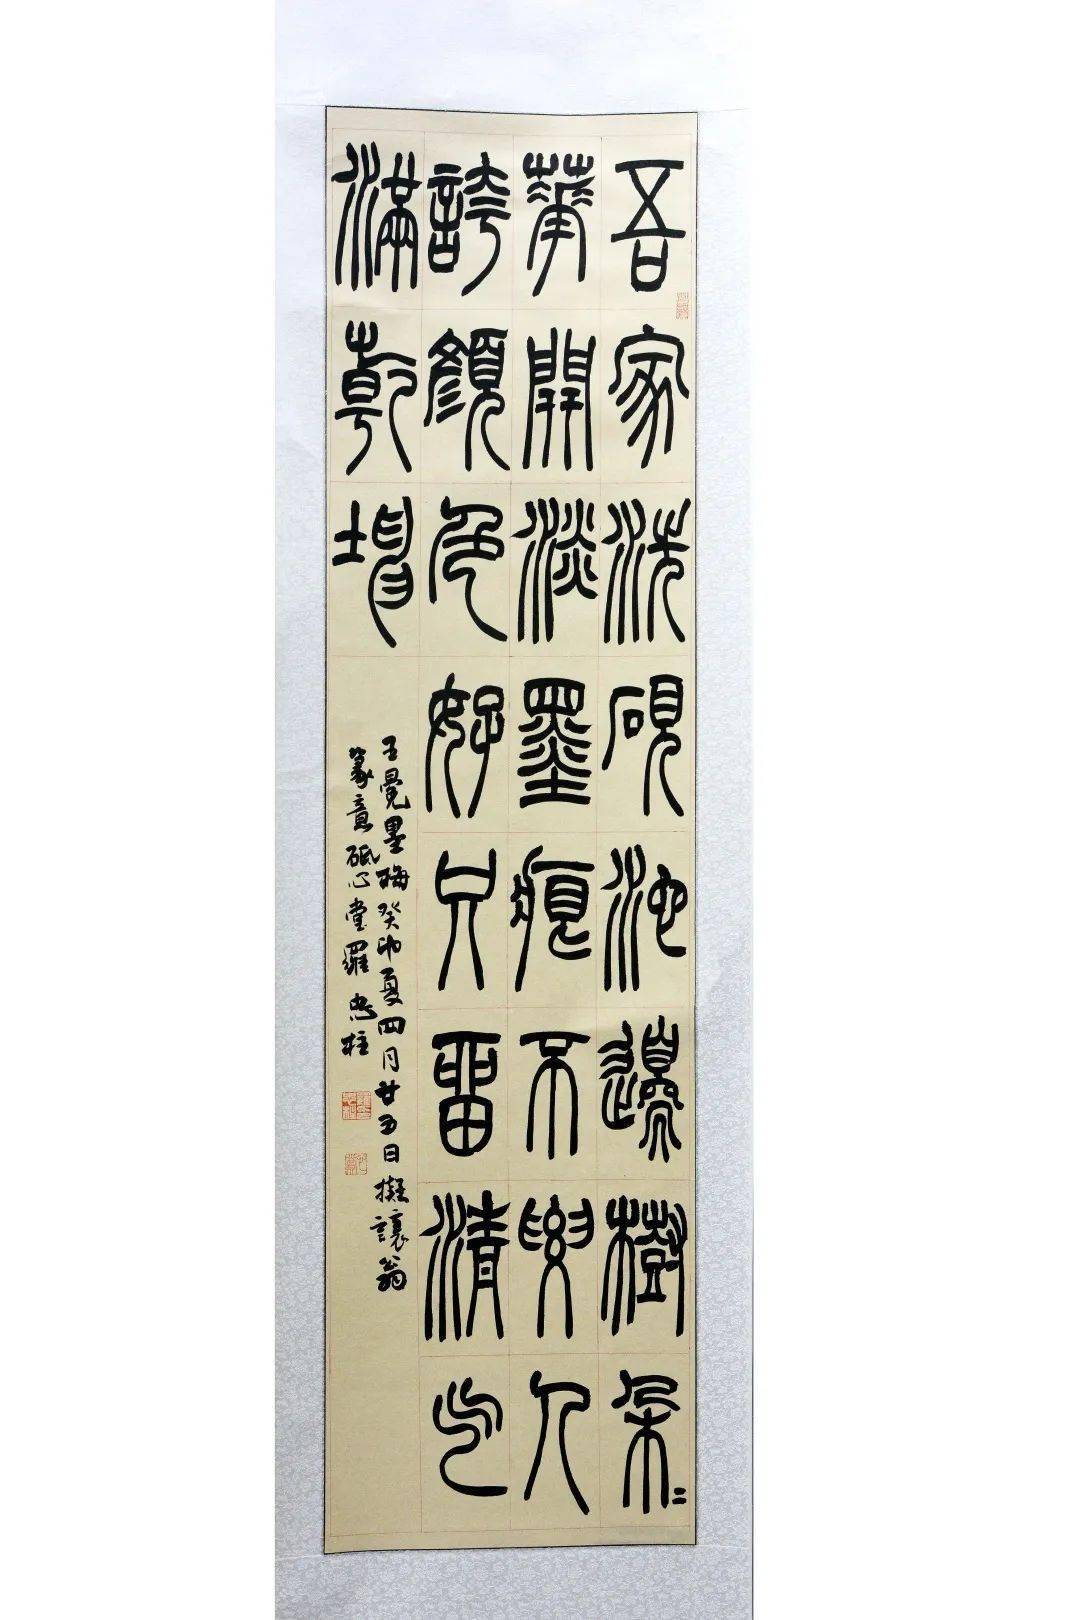 吾家洗硯池邊樹朵二
華開淡墨痕不要人
誇顏色好只留清气
滿乾坤
王冕墨梅癸卯夏四月廿五日擬讓翁
篆意砥心堂羅忠柱